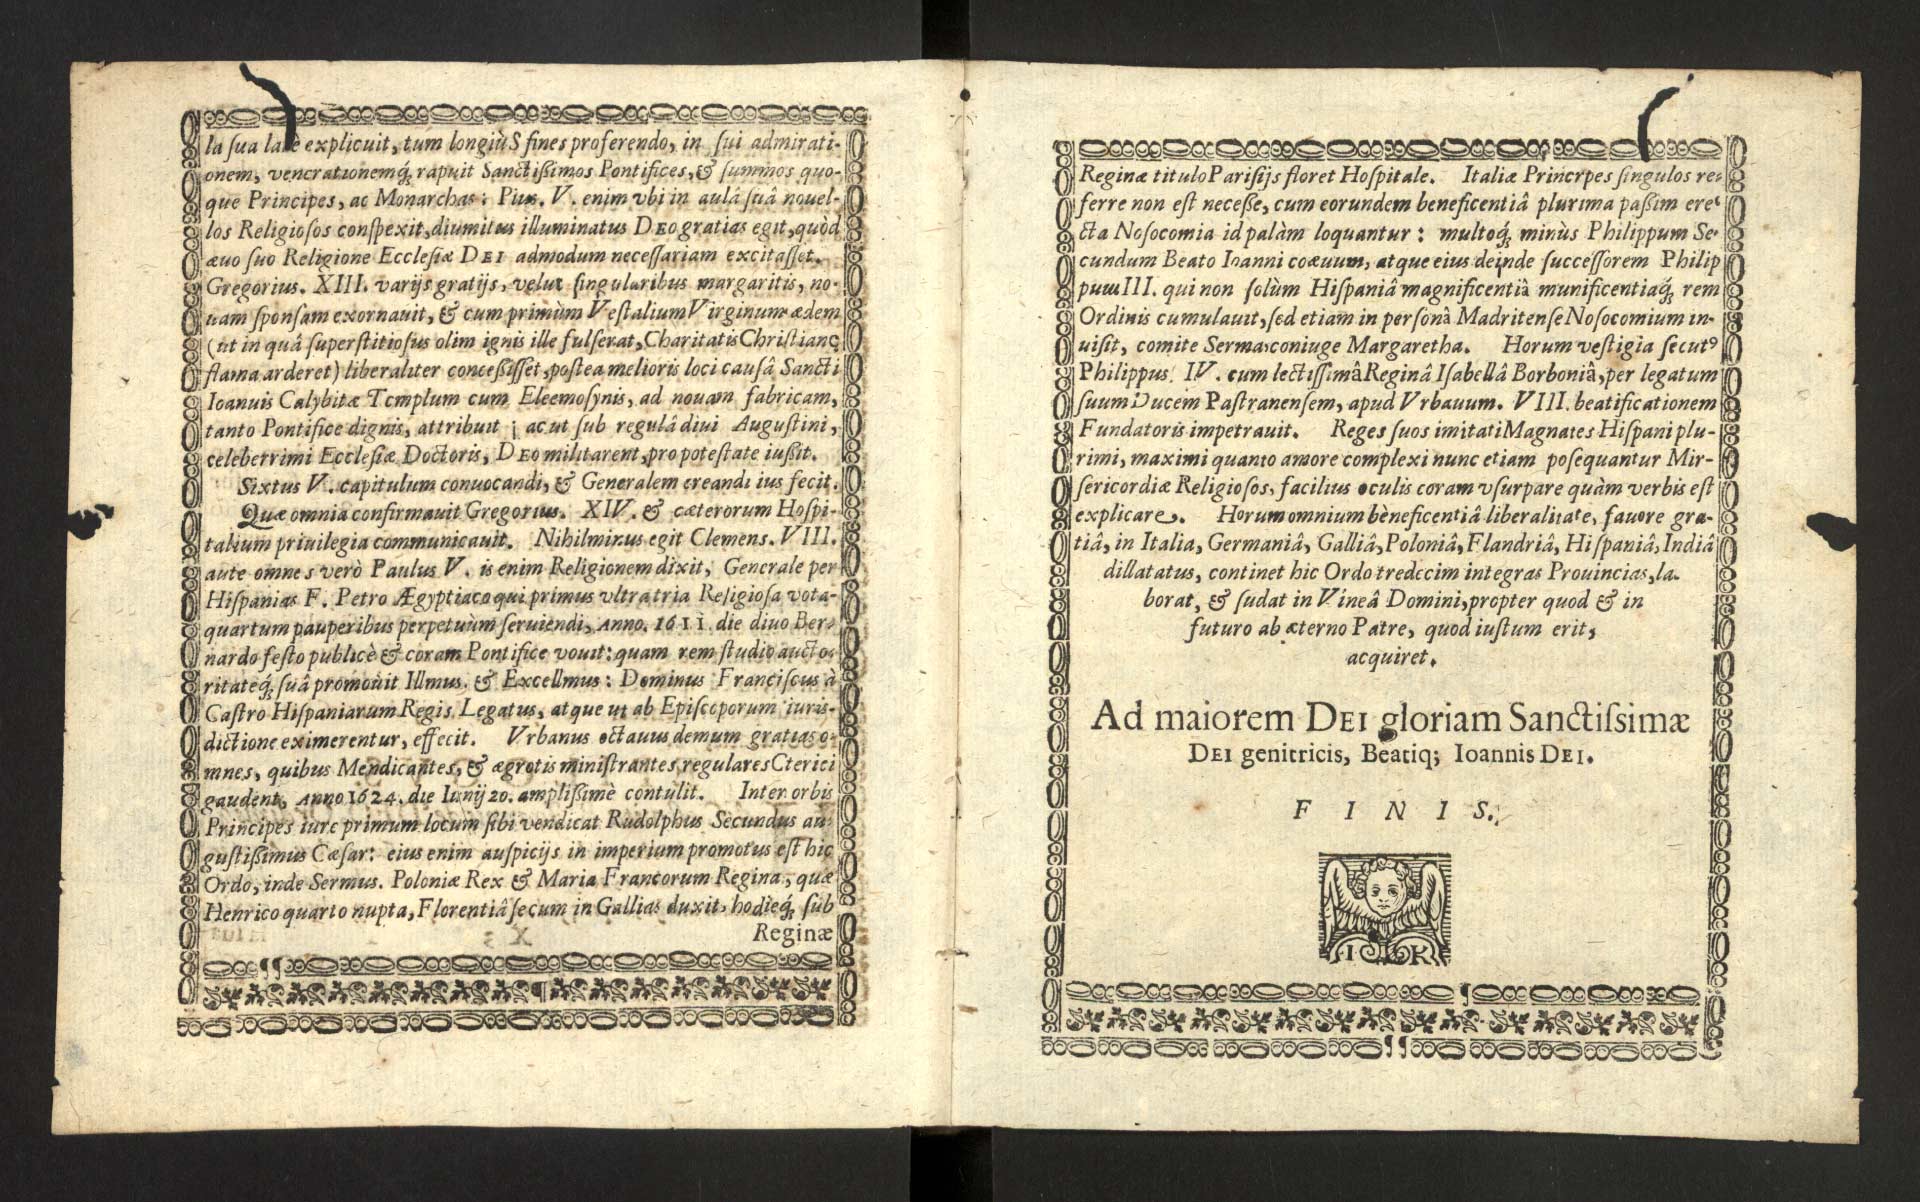 la sua late explicuit, tum longiùS fines proferendo, in sui admirati-
onem, vencrationemq́; rapuit Sanctißimos Pontifices, & summos quo-
que Principes, ac Monarchas: Pius. V. enim vbi in aulâ suâ nouel-
los Religiosos conspexit, diuinitus illuminatus DEO gratias egit, quòd
æuo suo Religione Ecclesiæ DEI admodum necessariam excitasset.
Gregorius. XIII. varijs gratijs, velut singularibus margaritis, no-
uam sponsam exornauit, & cum primùm Vestalium Virginum ædem
(ut in quâ superstitiosus olim ignis ille fulserat, Charitatis Christianę
flama arderet) liberaliter concessißet, postea melioris loci causâ Sancti
Ioanuis Calybitæ Templum cum Eleemosynis, ad nouam fabricam,
tanto Pontifice dignis, attribuit ; ac ut sub regulâ diui Augustini,
celeberrimi Ecclesiæ Doctoris, DEO militarent, pro potestate iußit.
Sixtus V. capitulum conuocandi, & Generalem creandi ius fecit.
Quæ omnia confirmauit Gregorius. XIV. & cæterorum Hospi-
talium priuilegia communicauit. Nihil minus egit Clemens. VIII.
aute omnes verò Paulus V. is enim Religionem dixit, Generale per
Hispanias F. Petro Ægyptiaco qui primus vltra tria Religiosa vota-
quartum pauperibus perpetuùm seruiendi, ANNO. 1611. die diuo Ber-
nardo festo publicè & coram Pontifice vouit: quam rem studio aucto-
ritateq́; suâ promouit Illmus. & Excellmus: Dominus Franciscus à
Castro Hispaniarum Regis Legatus, atque ut ab Episcoporum iuris-
dictione eximerentur, effecit. Vrbanus octauus demum gratias o-
mnes, quibus Mendicantes, & ægrotis ministrantes regulares Cterici
gaudent, ANNO 1624. die Iunij 20. amplißimè contulit. Inter orbis
Principes iure primum locum sibi vendicat Rudolphus Secundus au-
gustißimus Cæsar: eius enim auspicijs in imperium promotus est hic
Ordo, inde Sermus. Poloniæ Rex & Maria Francorum Regina, quæ
Henrico quarto nupta, Florentiâ secum in Gallias duxit, hodieq́; sub
Reginæ
Reginæ titulo Parisijs floret Hospitale. Italiæ Princrpes singulos re-
ferre non est neceße, cum eorundem beneficentiâ plurima paßim ere-
cta Nosocomia id palàm loquantur : multoq́; minùs Philippum Se-
cundum Beato Ioanni coæuum, atque eius deinde successorem Philip
pum III. qui non solùm Hispaniâ magnificentiâ munificentiaq́; rem
Ordinis cumulauit, sed etiam in personâ Madritense Nosocomium in-
uisit, comite Serma. coniuge Margaretha. Horum vestigia secutꝰ
Philippus. IV. cum lectissimâ Reginâ Isabellâ Borboniâ, per legatum
suum Ducem Pastranensem, apud Vrbauum. VIII. beatificationem
Fundatoris impetrauit. Reges suos imitati Magnates Hispani plu-
rimi, maximi quanto amore complexi nunc etiam posequantur Mir-
sericordiæ Religiosos, facilius oculis coram vsurpare quàm verbis est
explicare. Horum omnium bèneficentiâ liberalitate, fauore gra-
tiâ, in Italia, Germaniâ, Galliâ, Poloniâ, Flandriâ, Hispaniâ, Indiâ
dillatatus, continet hic Ordo tredecim integras Prouincias, la-
borat, & sudat in Vineâ Domini, propter quod & in
futuro ab æterno Patre, quod iustum erit,
acquiret.
Ad maiorem DEI gloriam Sanctissimæ
DEI genitricis, Beatiq; Ioannis DEI.
F I N I S.
I K